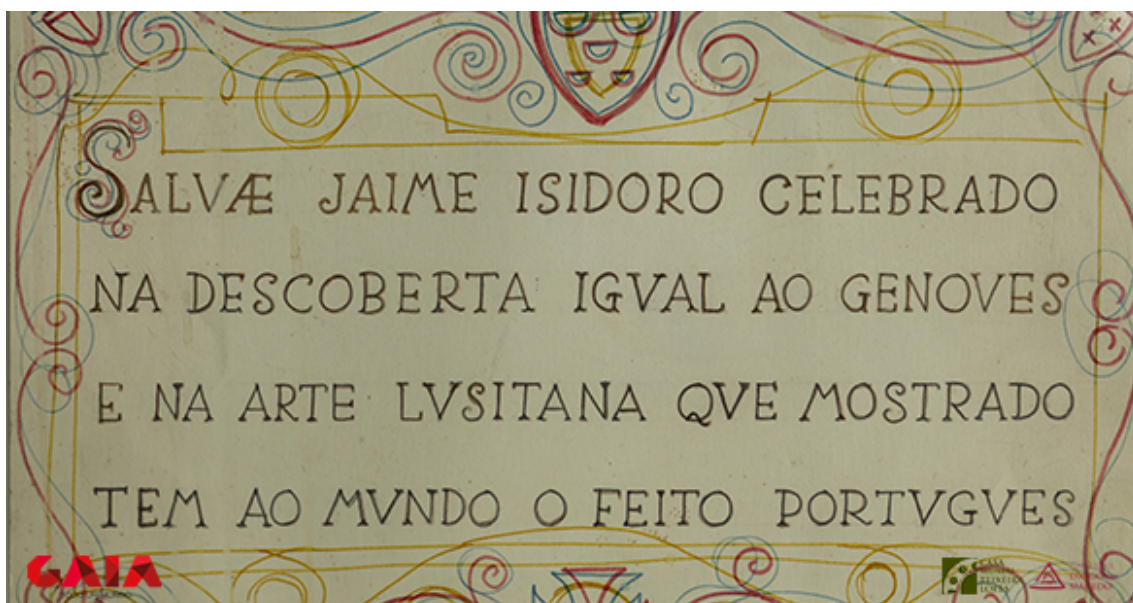 SALVÆ JAIME ISIDORO CELEBRADO
NA DESCOBERTA IGVAL AO GENOVES
E NA ARTE LVSITANA QVE MOSTRADO
TEM AO MVNDO O FEITO PORTVGVES
GAIA
CASA
TEIXEIRA
LOPES